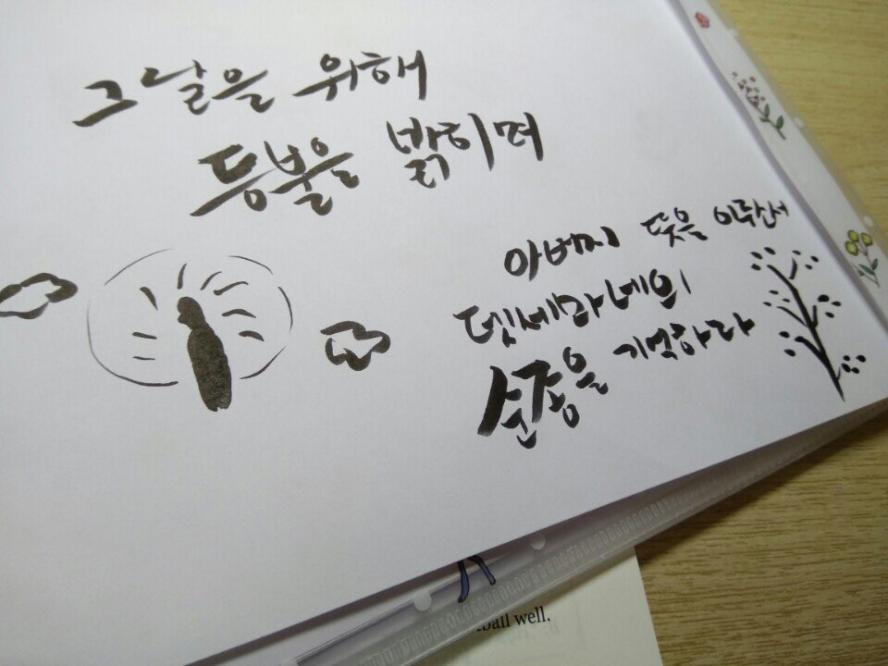 그날을 위해
등불을 밝히며
아버지 뜻을 이루신서
겟세마네의
순종을 기억하라
ball well.